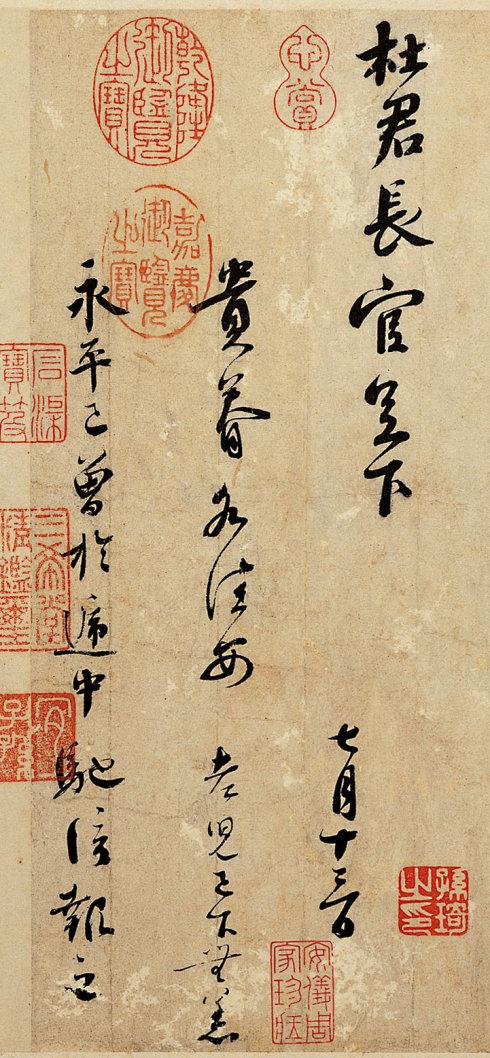 杜君長官足下
七月十三日
貴眷各佳安 老兒已下無恙
永平已曾於遞中 馳信報之
心賞
乾隆御覽之寶
嘉慶御覽之寶
石渠寶笈
三希堂精鑑璽
宜子孫
安儀周家珍藏